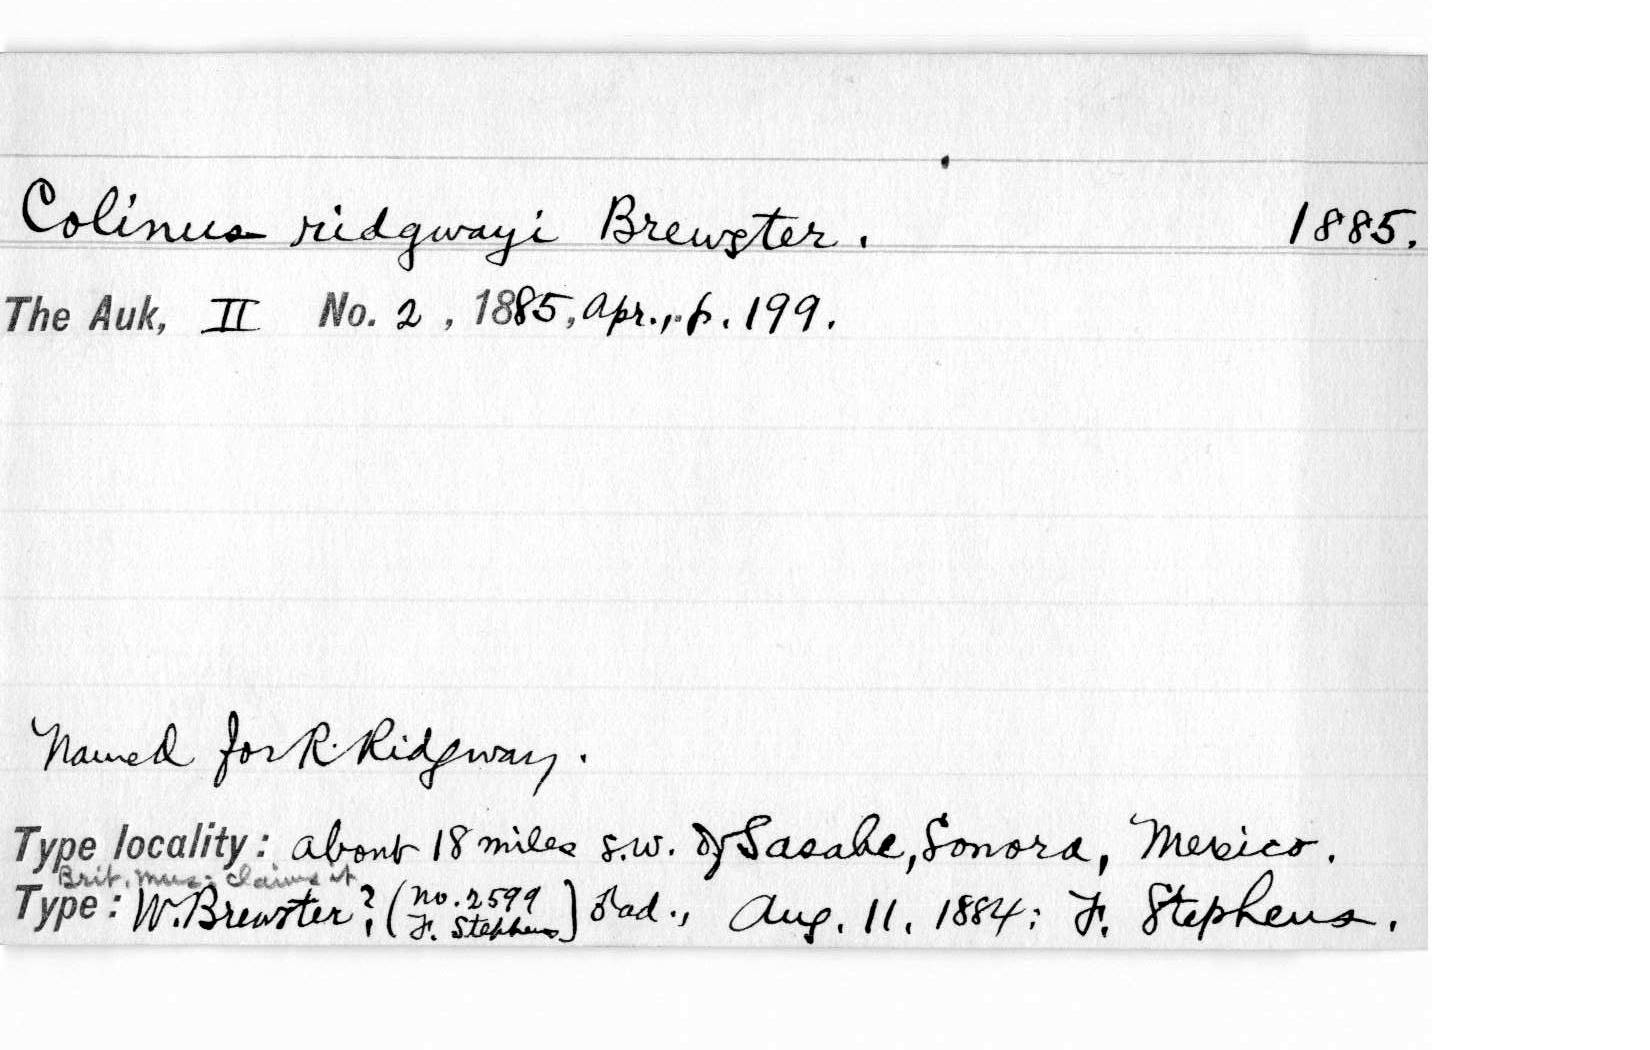 Colinus ridgwayi Brewster. 1885.
The Auk, II No. 2, 1885, Apr., p. 199.
Named for R. Ridgway.
Type locality: about 18 miles s.w. of Sasabe, Sonora, Mexico.
Brit. Mus. claims it
Type: W. Brewster?, (no. 2599
F. Stephens) ♂ ad., Aug. 11, 1884; F. Stephens.